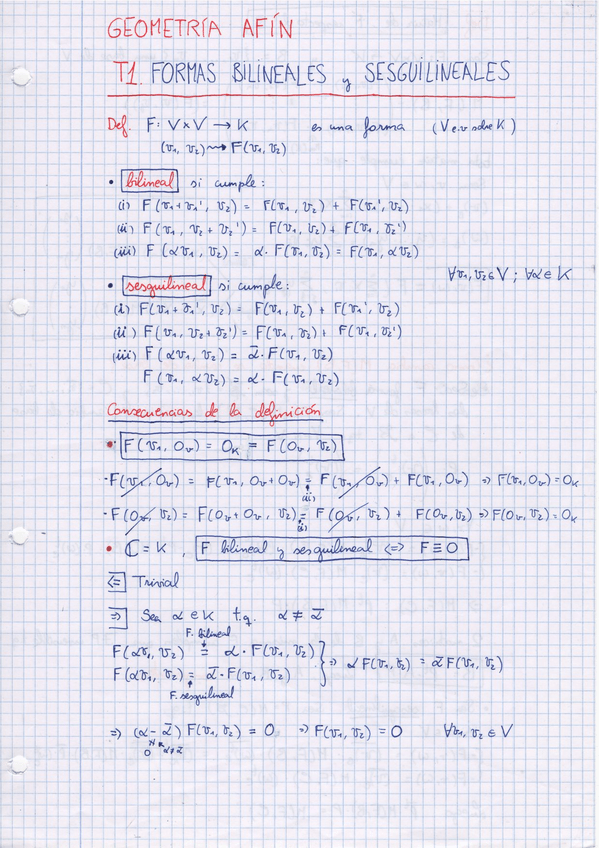 GEOMETRÍA AFÍN
T1. FORMAS BILINEALES y SESGUILINEALES
Def. F: V×V → K es una forma (V e.v sobre K)
(v₁, v₂) ⇝ F(v₁, v₂)
• bilineal si cumple:
(i) F(v₁+v₁', v₂) = F(v₁, v₂) + F(v₁', v₂)
(ii) F(v₁, v₂+v₂') = F(v₁, v₂) + F(v₁, v₂')
(iii) F(αv₁, v₂) = α·F(v₁, v₂) = F(v₁, αv₂)
∀v₁, v₂ ∈ V ; ∀α ∈ K
• sesguilineal si cumple:
(i) F(v₁+v₁', v₂) = F(v₁, v₂) + F(v₁', v₂)
(ii) F(v₁, v₂+v₂') = F(v₁, v₂) + F(v₁, v₂')
(iii) F(αv₁, v₂) = ᾱ·F(v₁, v₂)
F(v₁, αv₂) = α·F(v₁, v₂)
Consecuencias de la definición
• F(v₁, 0ᵥ) = 0ₖ = F(0ᵥ, v₂)
·F(v₁, 0ᵥ) = F(v₁, 0ᵥ+0ᵥ) = F(v₁, 0ᵥ) + F(v₁, 0ᵥ) ⇒ F(v₁, 0ᵥ) = 0ₖ
(ii)
·F(0ᵥ, v₂) = F(0ᵥ+0ᵥ, v₂) = F(0ᵥ, v₂) + F(0ᵥ, v₂) ⇒ F(0ᵥ, v₂) = 0ₖ
(i)
• ℂ = K, F bilineal y sesguilineal ⇔ F ≡ 0
⇐ Trivial
⇒ Sea α ∈ K t.q. α ≠ ᾱ
F. bilineal
F(αv₁, v₂) = α·F(v₁, v₂)
F(αv₁, v₂) = ᾱ·F(v₁, v₂) } ⇒ αF(v₁, v₂) = ᾱF(v₁, v₂)
F. sesguilineal
⇒ (α-ᾱ) F(v₁, v₂) = 0 ⇒ F(v₁, v₂) = 0 ∀v₁, v₂ ∈ V
≠ α≠ᾱ
0